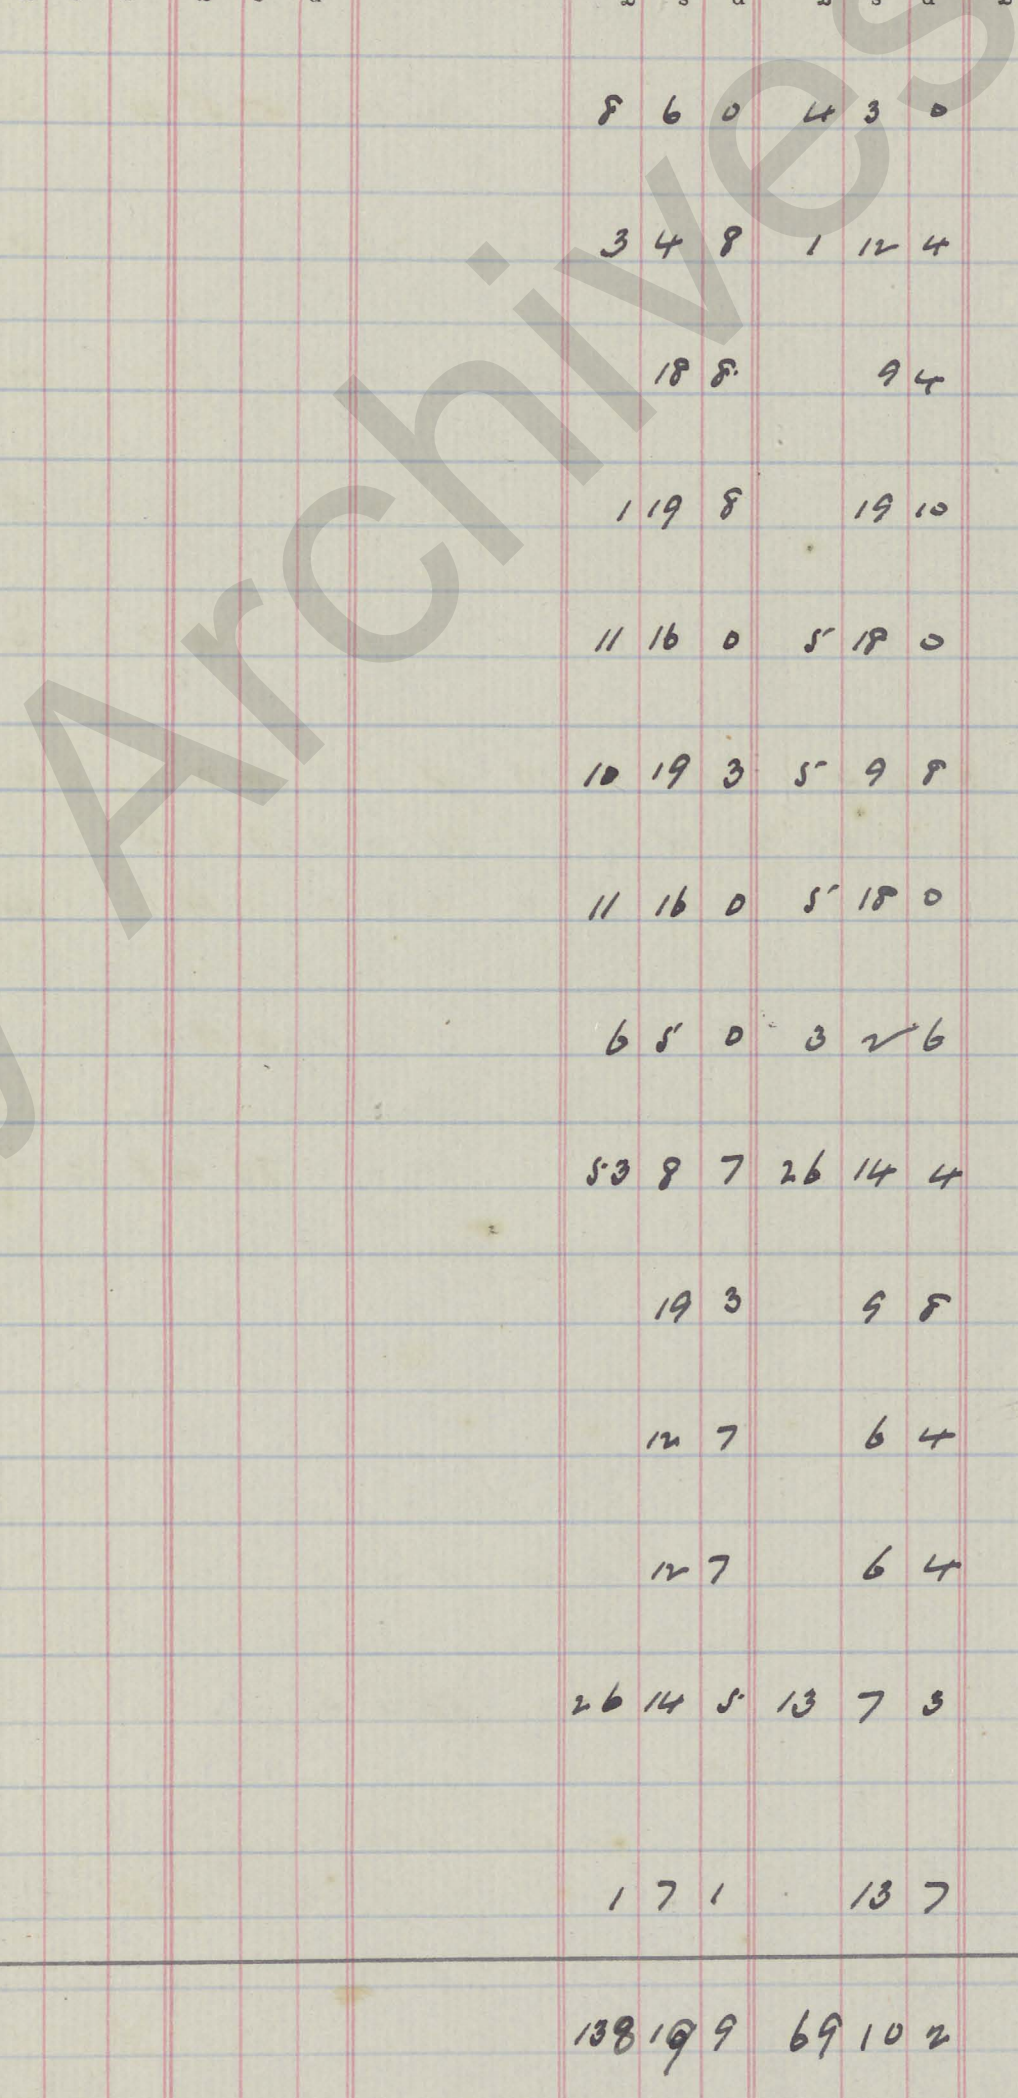 £ s d £ s d
8 6 0 4 3 0
3 4 8 1 12 4
18 8 9 4
1 19 8 19 10
11 16 0 5 18 0
10 19 3 5 9 8
11 16 0 5 18 0
6 5 0 3 2 6
53 8 7 26 14 4
19 3 9 8
12 7 6 4
12 7 6 4
26 14 5 13 7 3
1 7 1 13 7
138 19 9 69 10 2
Archives